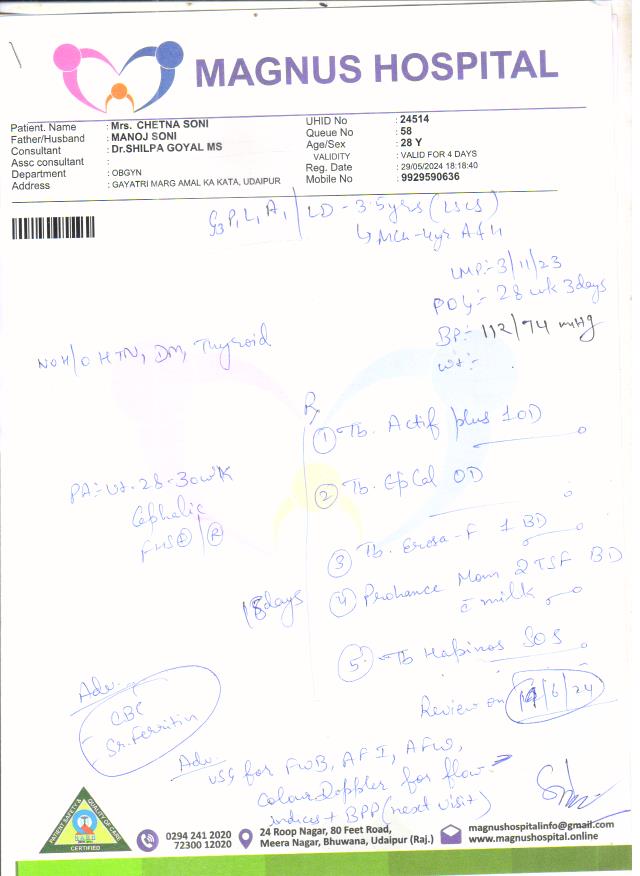 MAGNUS HOSPITAL
Patient. Name : Mrs. CHETNA SONI
Father/Husband : MANOJ SONI
Consultant : Dr.SHILPA GOYAL MS
Assc consultant :
Department : OBGYN
Address : GAYATRI MARG AMAL KA KATA, UDAIPUR
UHID No : 24514
Queue No : 58
Age/Sex : 28 Y
VALIDITY : VALID FOR 4 DAYS
Reg. Date : 29/05/2024 18:18:40
Mobile No : 9929590636
G3 P1 L1 A1 / LD - 3.5yrs (LSCS)
LMP:- 3/11/23
POG:- 28 wk 3days
BP:- 112/74 mmHg
wt:-
No H/O HTN, DM, Thyroid
Rx
① Tb. Actif plus 1 OD
PA:- Ut. 28-30wk
Cephalic
FHS
② Tb. GpCal OD
③ Tb. 1 BD
18days
④ Prohance Mom 2 TSF BD
c̄ milk
⑤ Tb SOS
Review on 19/6/24
Adv.
CBC
Sr. Ferritin
Adv.
USG for FWB, AFI, AFW,
Colour Doppler for flow
indices + BPP (next visit)
PATIENT SAFETY & QUALITY OF CARE
CERTIFIED
0294 241 2020
73300 12020
24 Roop Nagar, 80 Feet Road,
Meera Nagar, Bhuwana, Udaipur (Raj.)
magnushospitalinfo@gmail.com
www.magnushospital.online